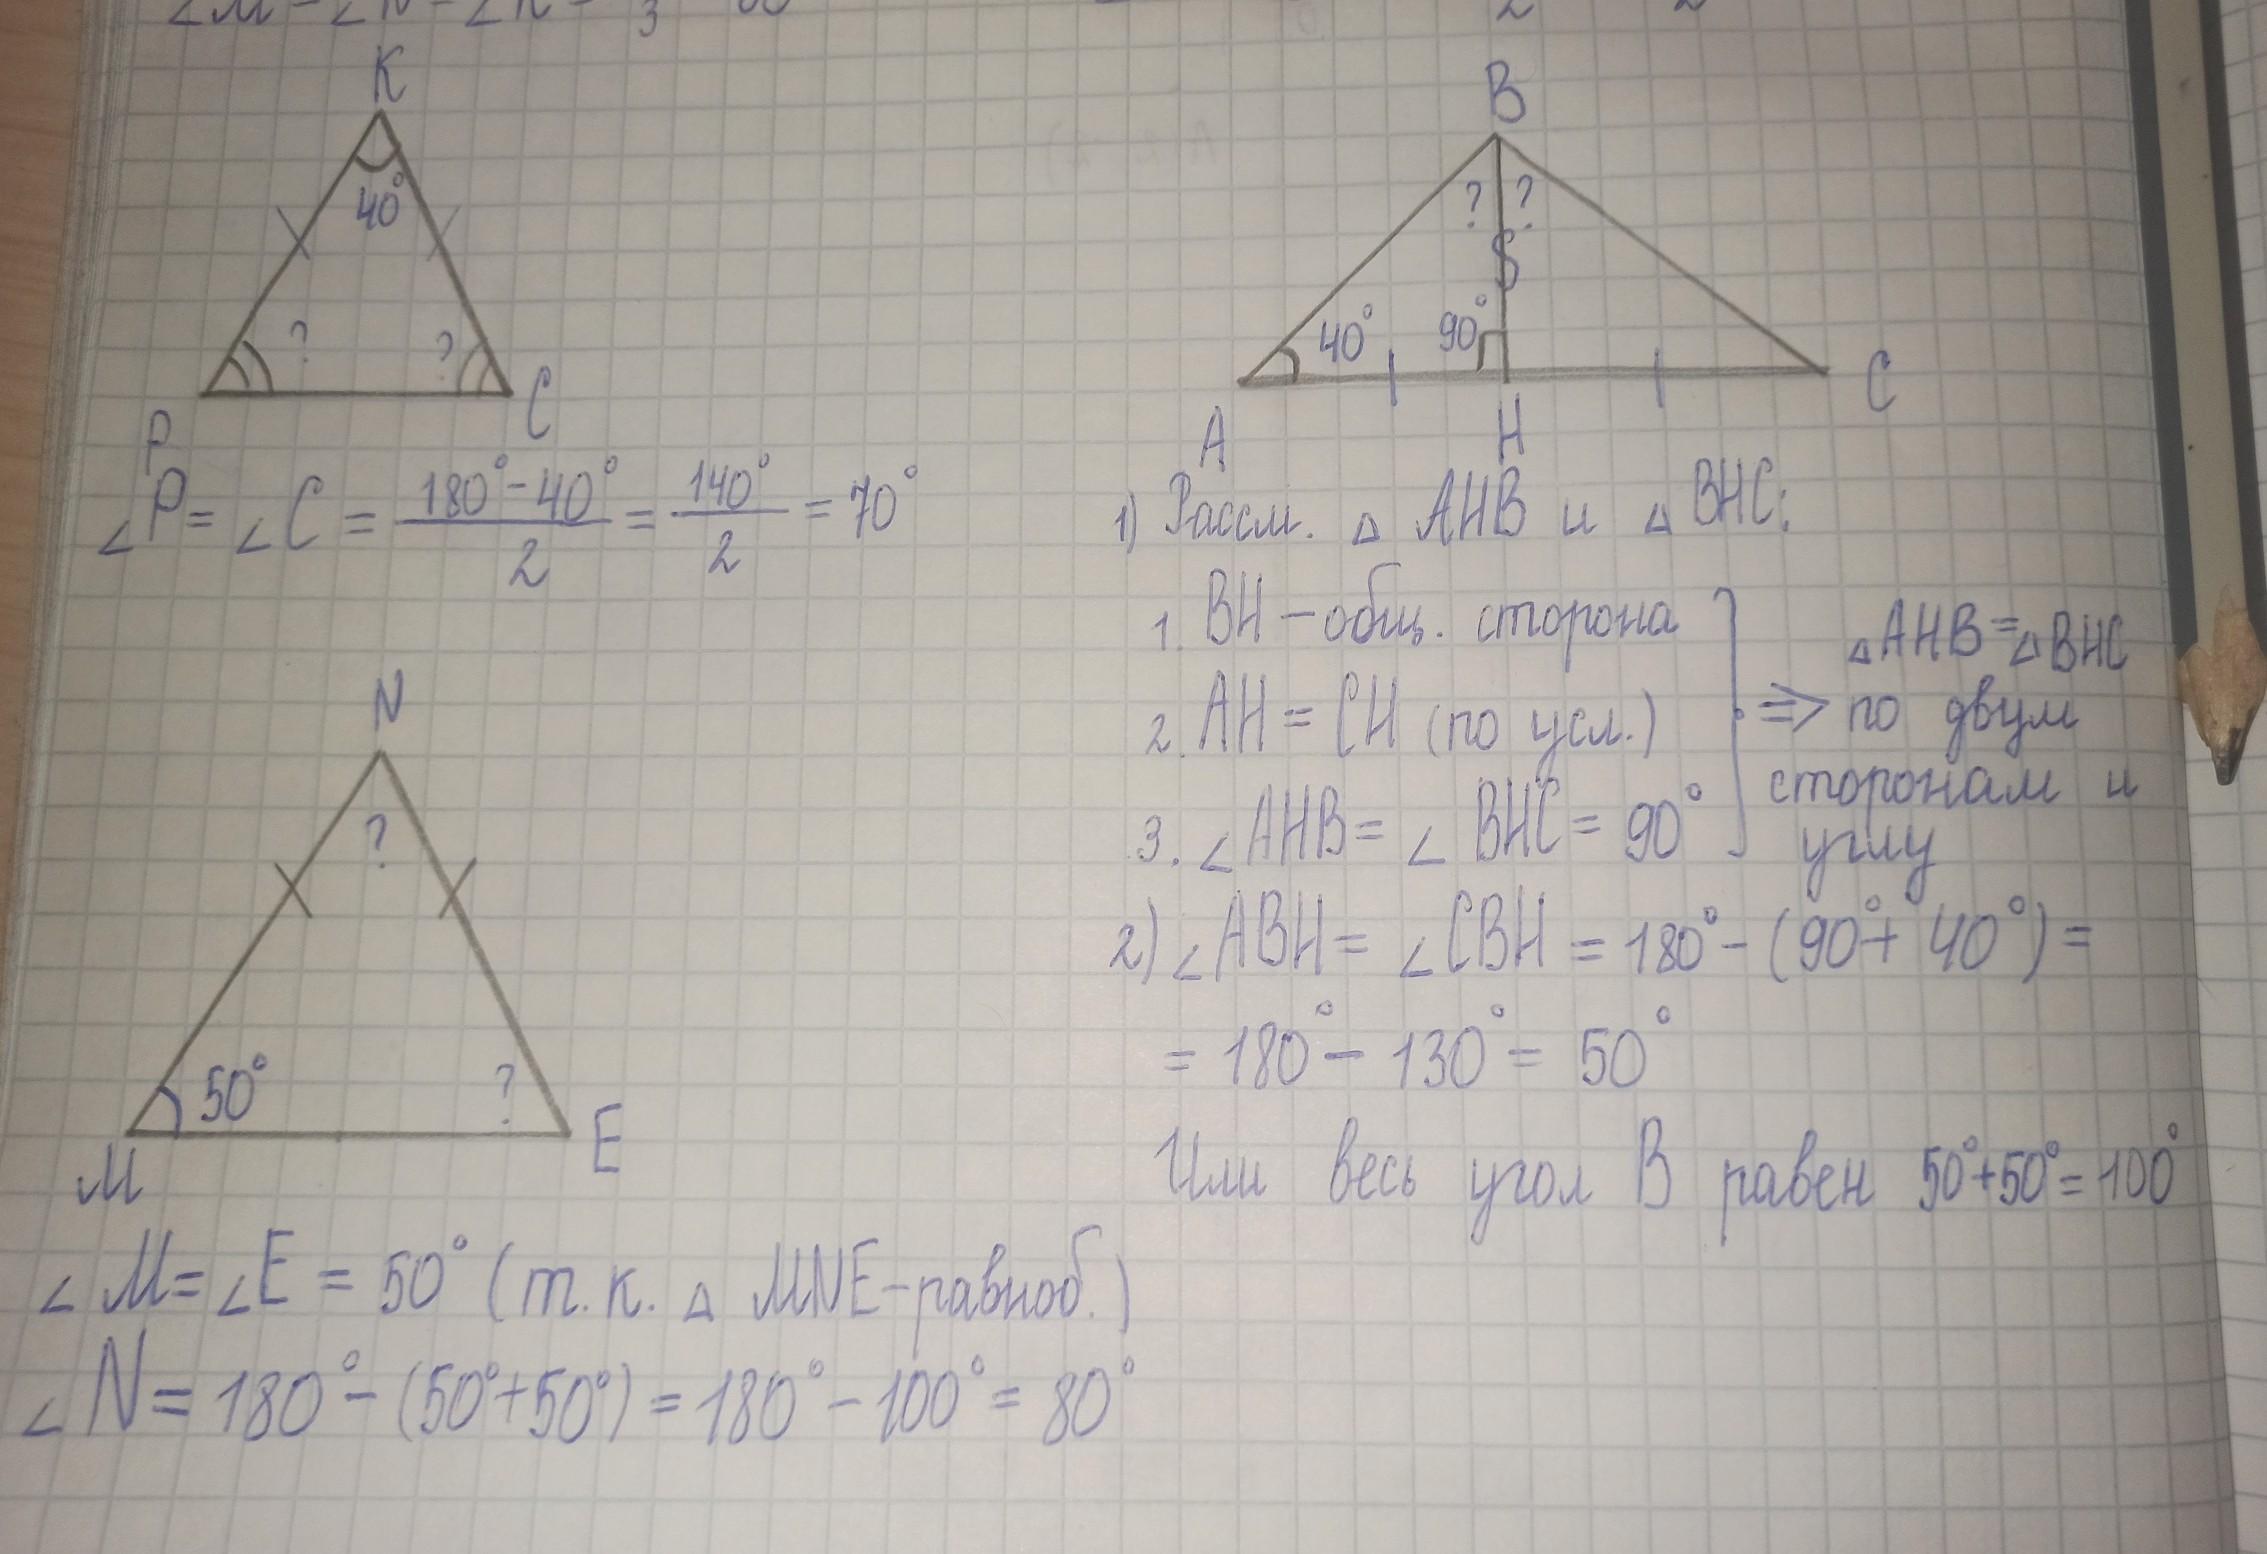 K
40°
? ?
P C
∠P = ∠C = (180° - 40°)/2 = 140°/2 = 70°
N
?
50° ?
M E
∠M = ∠E = 50° (т.к. △ MNE - равноб.)
∠N = 180° - (50° + 50°) = 180° - 100° = 80°
B
? ?
40° 90°
A H C
1) Рассм. △ AHB и △ BHC:
1. BH - общ. сторона
2. AH = CH (по усл.)
3. ∠AHB = ∠BHC = 90°
⇒ △AHB = △BHC
по двум
сторонам и
углу
2) ∠ABH = ∠CBH = 180° - (90° + 40°) =
= 180° - 130° = 50°
Или весь угол B равен 50° + 50° = 100°